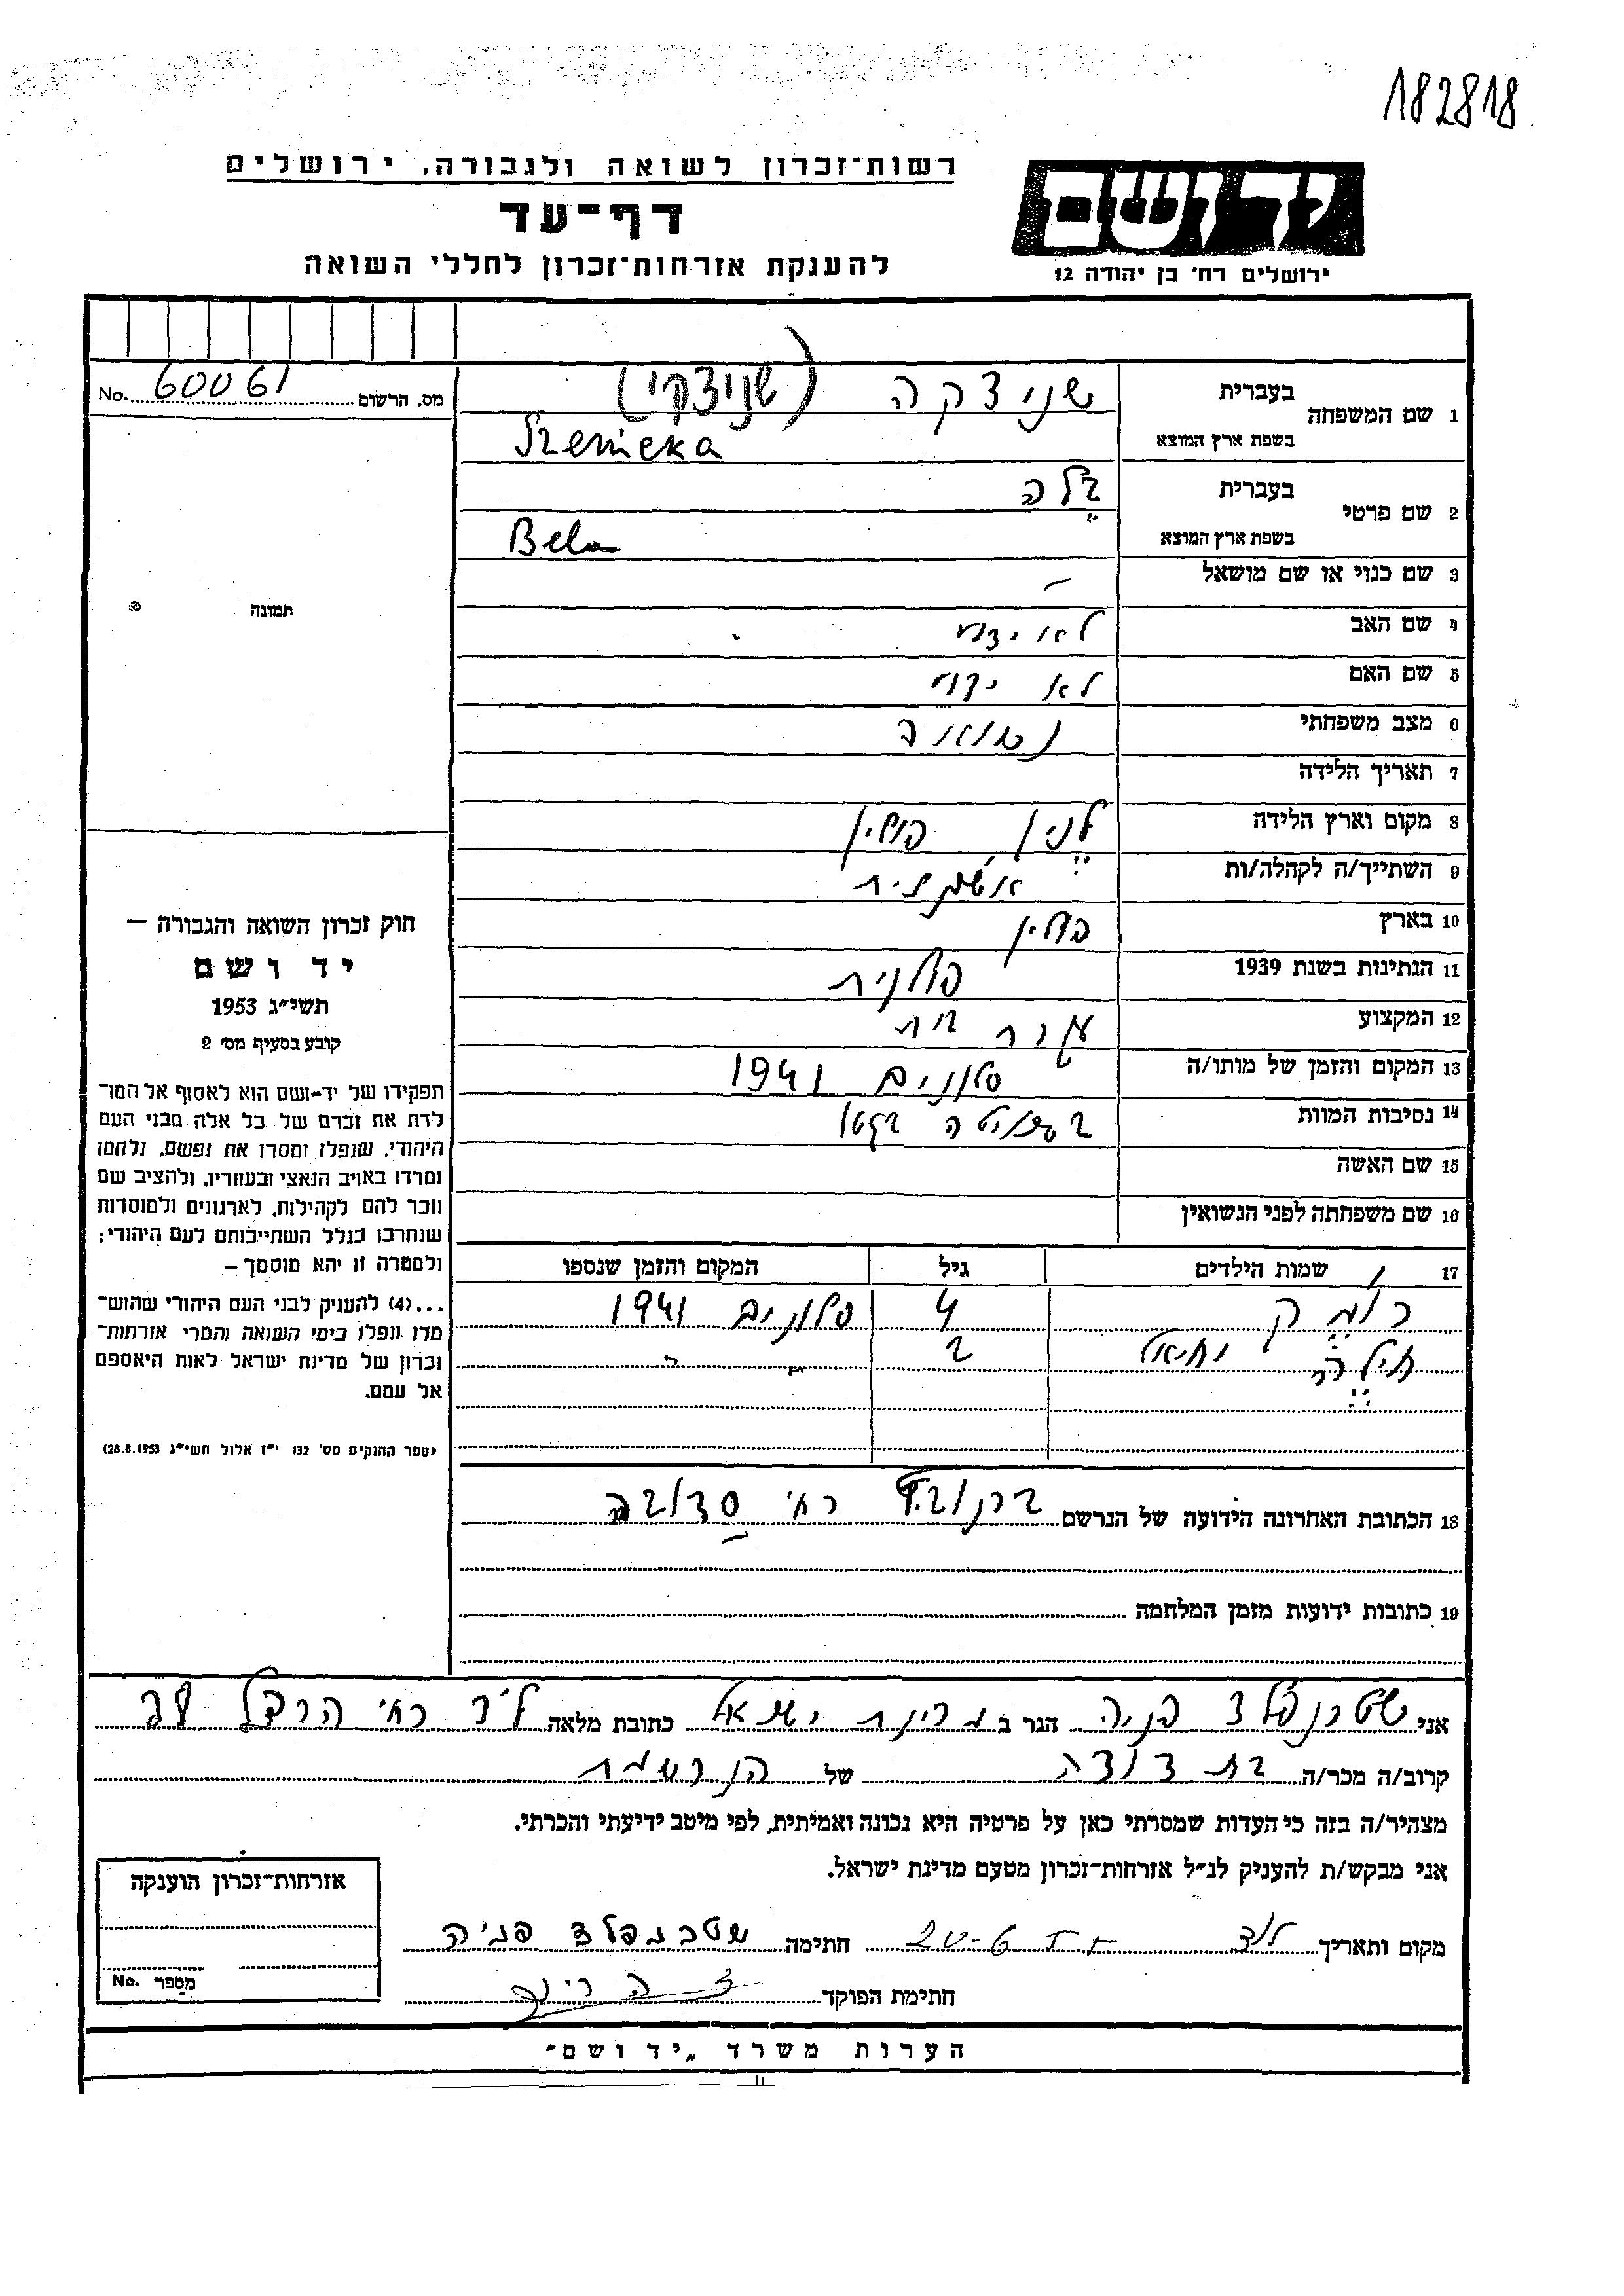 182818
רשות־זכרון לשואה ולגבורה, ירושלים
דף־עד
להענקת אזרחות־זכרון לחללי השואה
יד ושם
ירושלים רח׳ בן יהודה 12
מס. הרשום 60061 No.
1 שם המשפחה בעברית שניצקה (שניצקי)
בשפת ארץ המוצא
2 שם פרטי בעברית בלה
בשפת ארץ המוצא Bela
תמונה
3 שם כנוי או שם מושאל –
4 שם האב לא ידוע
5 שם האם לא ידוע
6 מצב משפחתי נשואה
7 תאריך הלידה
8 מקום וארץ הלידה לנין פולין
9 השתייך/ה לקהלה/ות אשכנזית
10 בארץ פולין
11 הנתינות בשנת 1939 פולנית
12 המקצוע עקרת בית
13 המקום והזמן של מותו/ה סלונים 1941
14 נסיבות המוות בשחיטה בגטו
15 שם האשה
16 שם משפחתה לפני הנשואין
17 שמות הילדים גיל המקום והזמן שנספו
4 סלונים 1941
יחיאל 2 " "
חוק זכרון השואה והגבורה –
יד ושם
תשי״ג 1953
קובע בסעיף מס׳ 2
תפקידו של יד־ושם הוא לאסוף אל המו־
לדת את זכרם של כל אלה מבני העם
היהודי, שנפלו ומסרו את נפשם, נלחמו
ומרדו באויב הנאצי ובעוזריו, ולהציב שם
וזכר להם לקהילות, לארגונים ולמוסדות
שנחרבו בגלל השתייכותם לעם היהודי;
ולמטרה זו יהא מוסמך –
...(4) להעניק לבני העם היהודי שהוש־
מדו ונפלו בימי השואה והמרי אזרחות־
זכרון של מדינת ישראל לאות היאספם
אל עמם.
(ספר החוקים מס׳ 132 י״ז אלול תשי״ג 28.8.1953)
18 הכתובת האחרונה הידועה של הנרשם ברנוביץ רח׳
19 כתובות ידועות מזמן המלחמה
אני שטרנפלד פניה הגר ב מדינת ישראל כתובת מלאה לוד רח׳ הרצל
קרוב/ה מכר/ה בת דודה של הנרשמת
מצהיר/ה בזה כי העדות שמסרתי כאן על פרטיה היא נכונה ואמיתית, לפי מיטב ידיעתי והכרתי.
אני מבקש/ת להעניק לנ״ל אזרחות־זכרון מטעם מדינת ישראל.
אזרחות־זכרון הוענקה
מספר No.
מקום ותאריך לוד חתימה שטרנפלד פניה
חתימת הפוקד
הערות משרד „יד ושם״